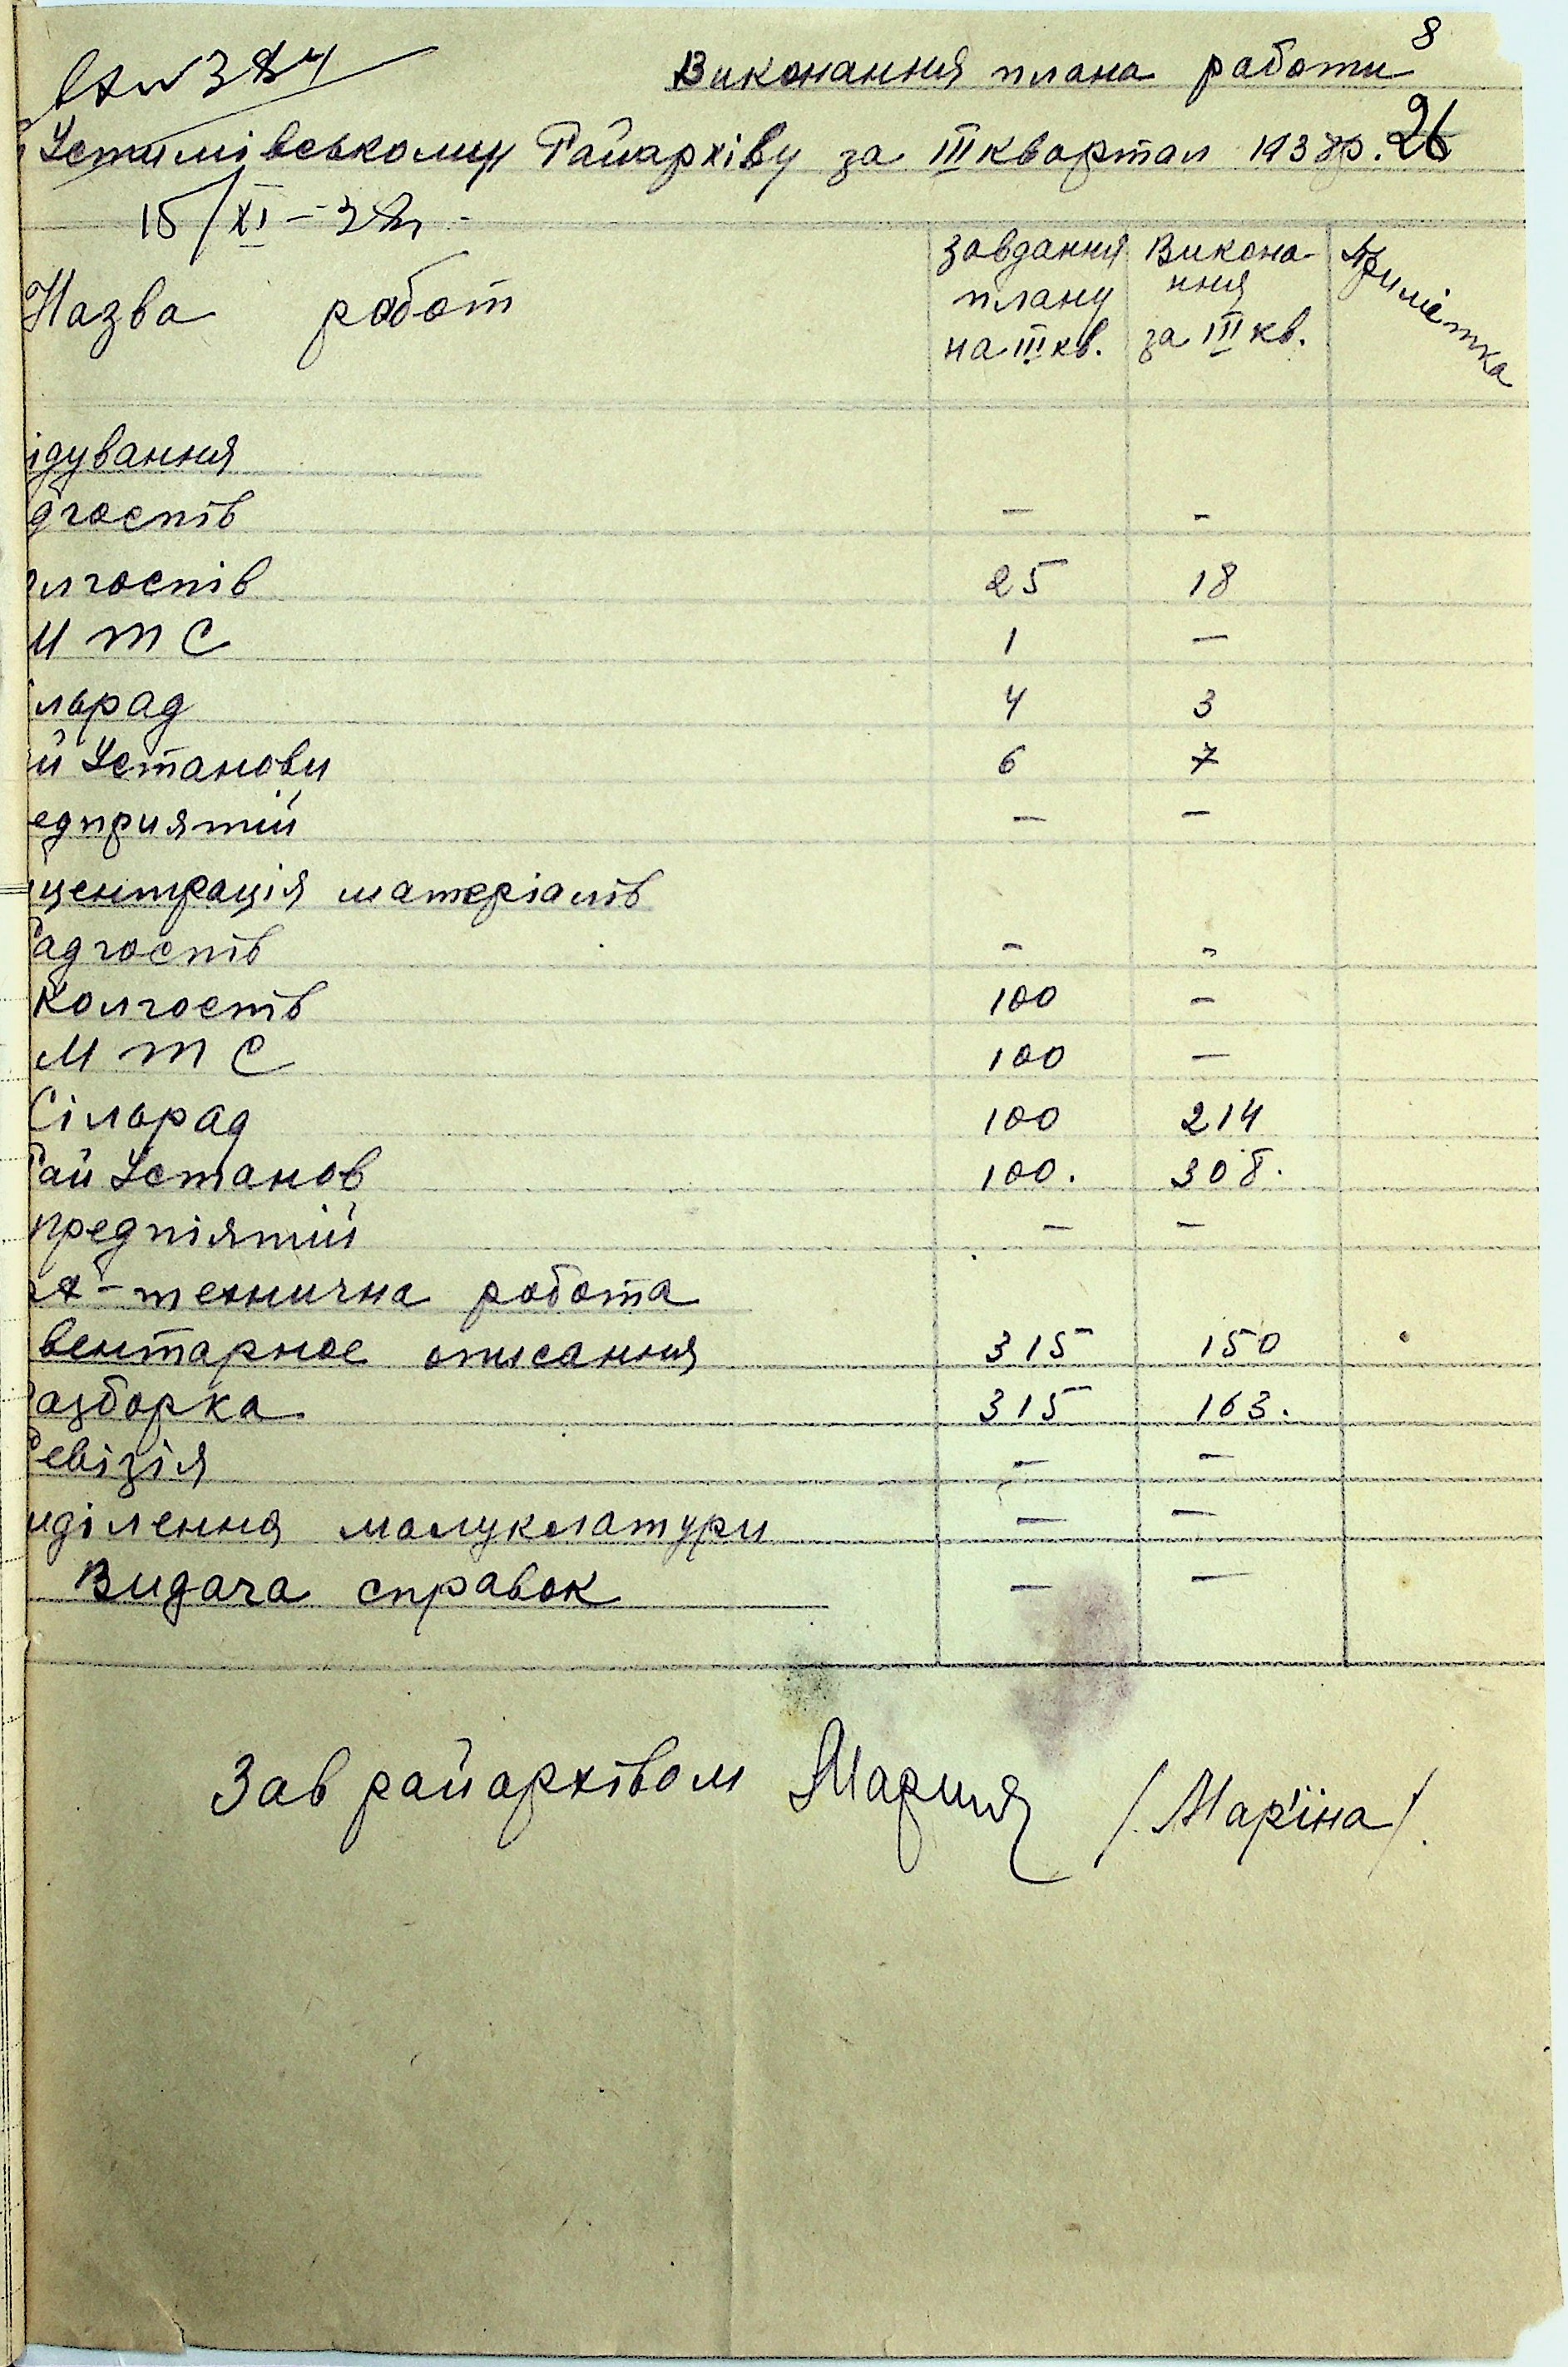 Вх № 384
8
Виконання плана работи
Устимівському Райархіву за III квартал 1938р. 26
15/XI-38р.
Назва работ | завдання плану на III кв. | Викона-ння за III кв. | Примітка
ідування
дгоспів — -
лгоспів 25 18
МТС 1 —
льрад 4 3
й Установи 6 7
едприятій — —
центрація матеріалів
Радгоспів - -
Колгоспів 100 -
МТС 100 —
Сільрад 100 214
Рай Установ 100. 308.
предпіятій — —
х-технична робота
вентарное описання 315 150
Разборка 315 163.
Ревізія — —
иділення малукклатури — —
Видача справок — —
Зав райархівом /Мар'іна/.